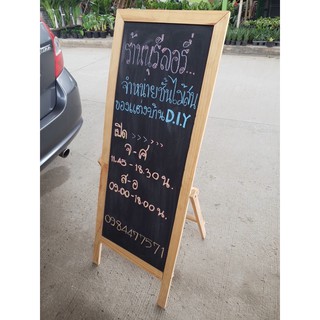 ร้านทุรีลอรี่...
จำหน่ายชั้นไม้สน
ของแต่งบ้าน D.I.Y
เปิด >>>>>
จ-ศ
11.45-18.30 น.
ส-อ
09.00-18.00 น.
0984477571